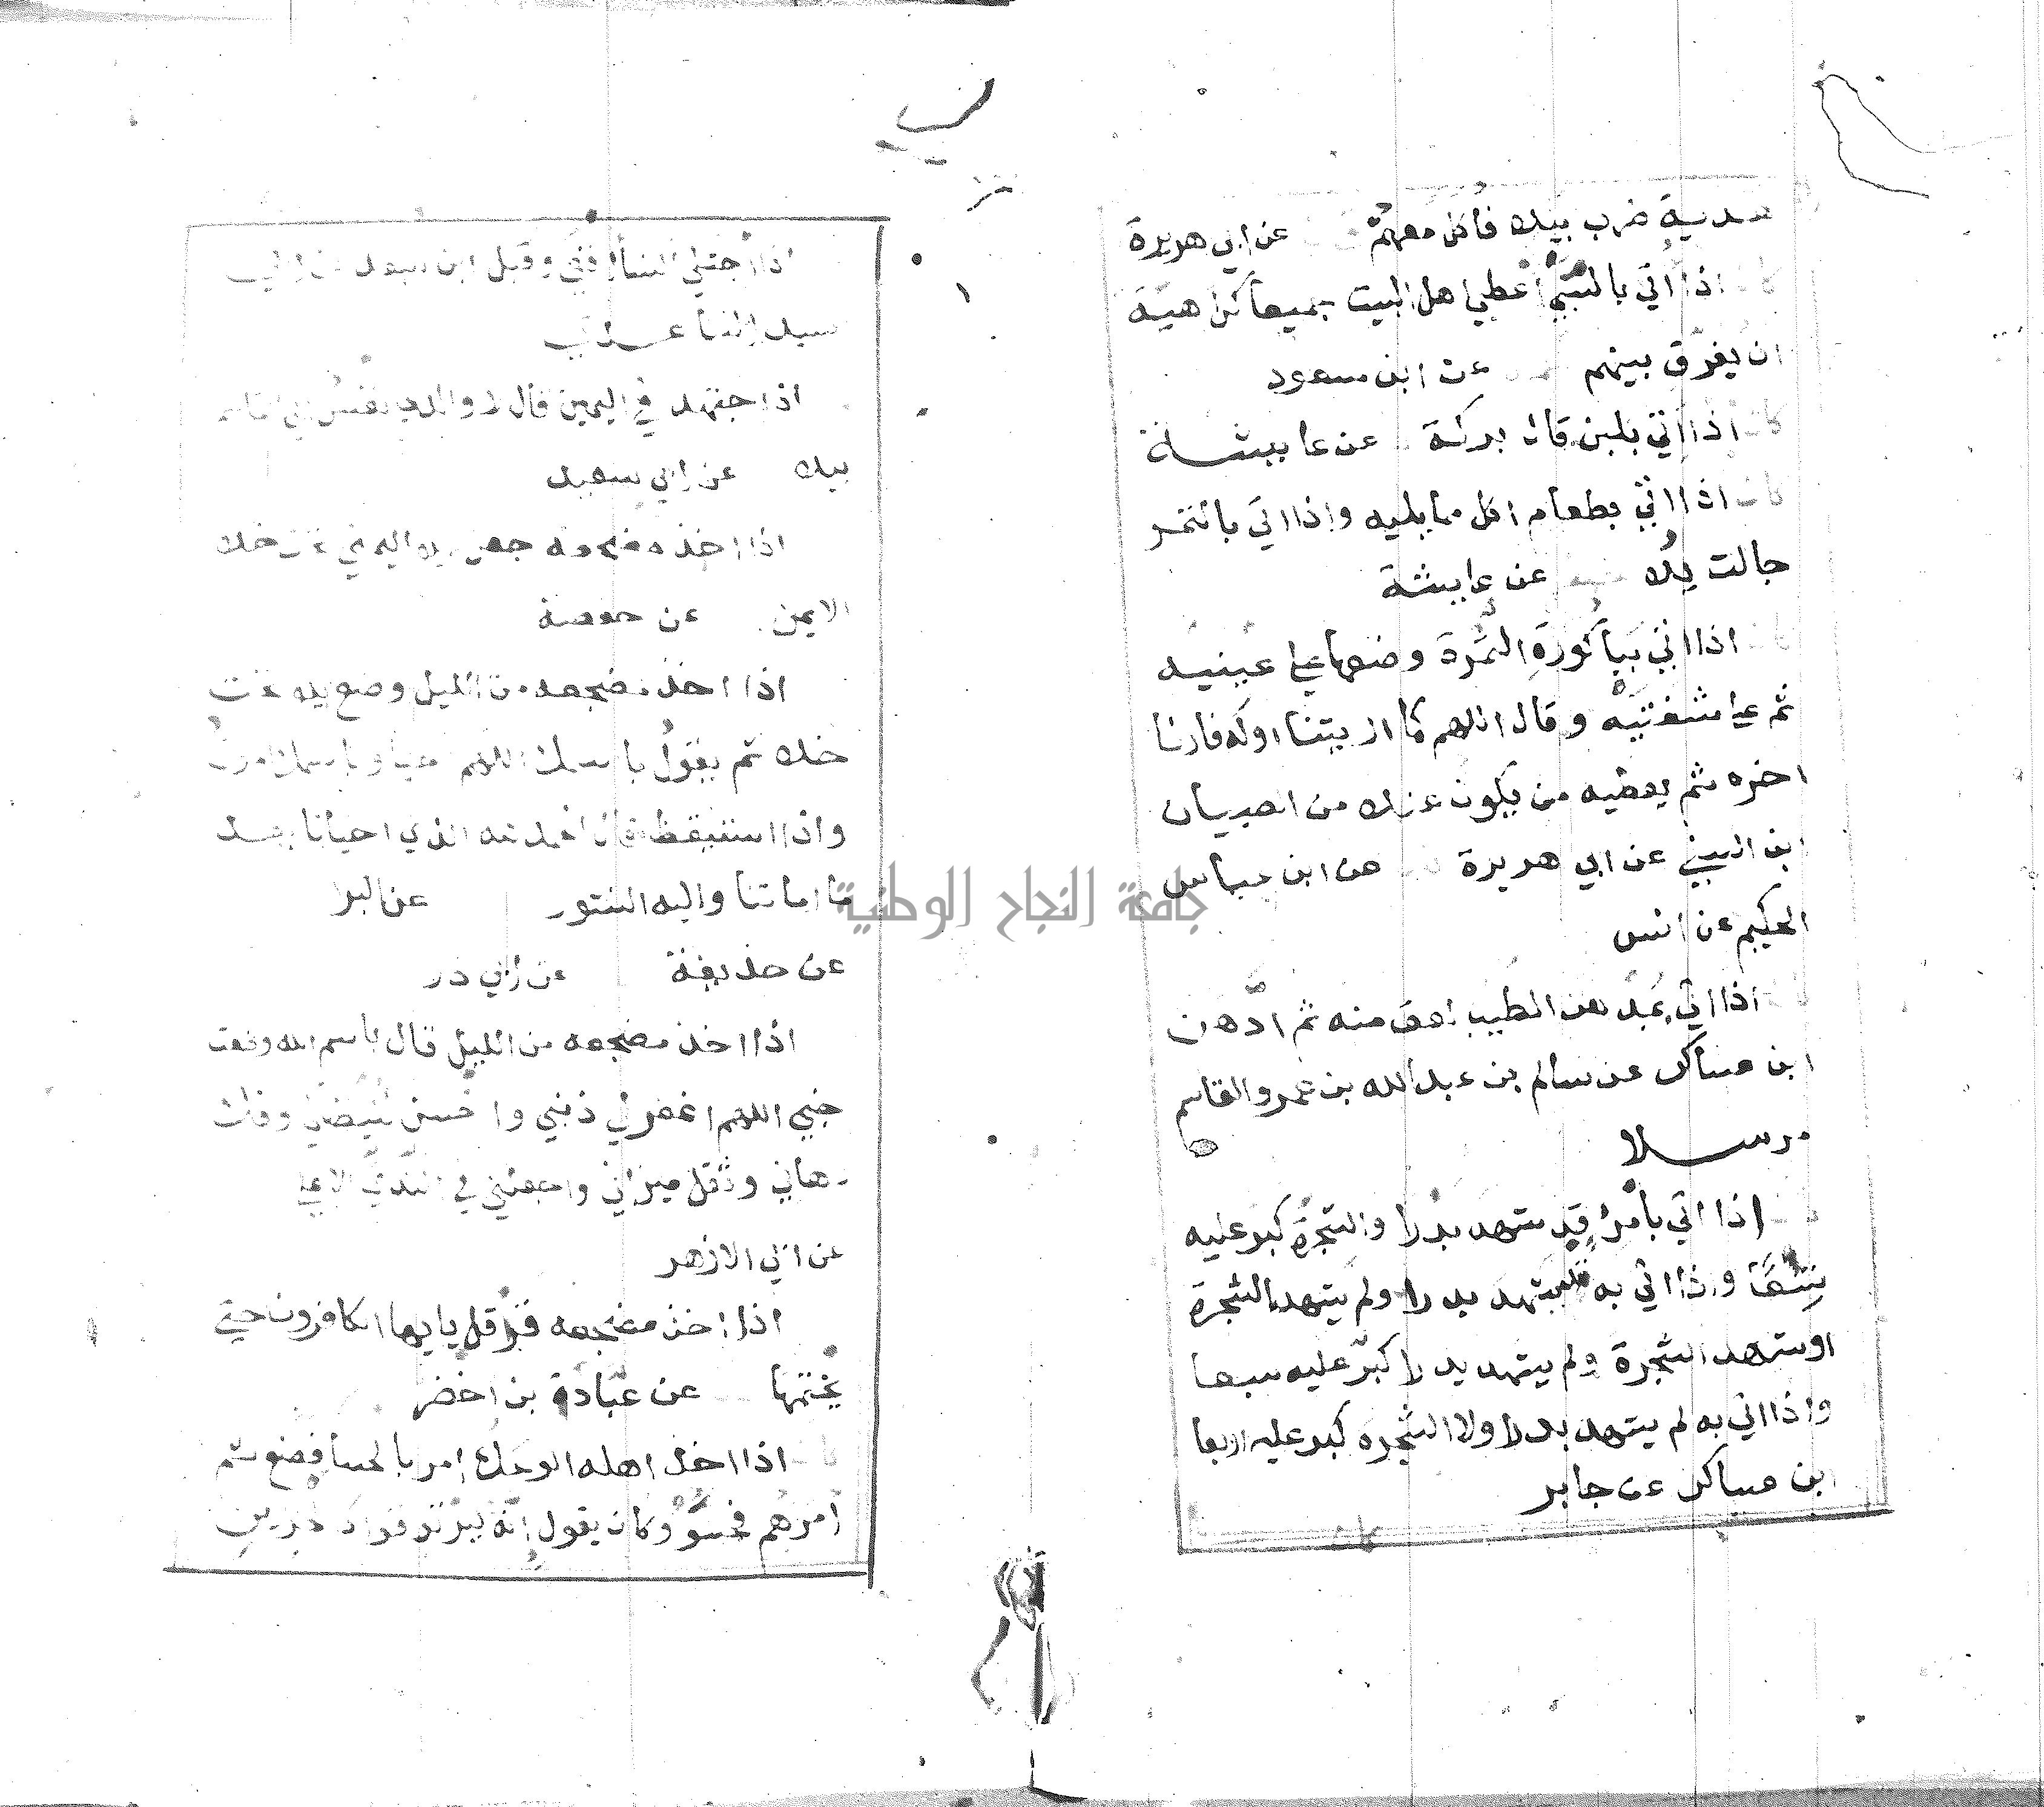 هدية ضرب بيده فاكل معهم عن ابي هريرة
كان اذا اتي بالسبي اعطي اهل البيت جميعا كراهية
ان يفرق بينهم عن ابن مسعود
كان اذا اتي بلبن قال بركة عن عايشة
كان اذا اتي بطعام اكل مما يليه واذا اتي بالتمر
جالت يده عن عايشة
كان اذا اتي بباكورة الثمرة وضعها علي عينيه
ثم علي شفتيه وقال اللهم كما اريتنا اوله فارنا
اخره ثم يعطيه من يكون عنده من الصبيان
ابن السني عن ابي هريرة عن ابن عباس
الحكيم عن انس
اذا اتي بمدهن الطيب لعق منه ثم ادهن
ابن عساكر عن سالم بن عبد الله بن عمر والقاسم
مرسلا
اذا اتي بامرئ قد شهد بدرا والشجرة كبر عليه
تسعا واذا اتي به قد شهد بدرا ولم يشهد الشجرة
او شهد الشجرة ولم يشهد بدرا كبر عليه سبعا
واذا اتي به لم يشهد بدرا ولا الشجرة كبر عليه اربعا
ابن عساكر عن جابر
كان
١
اذا اجتلي النسا اقعي وقبل
سعد
اذا اجتهد في اليمين قال لا والذي نفس ابي القاسم
بيده عن ابي سعيد
اذا اخذ مضجعه جعل يده اليمني تحت خده
الايمن عن حفصة
اذا اخذ مضجعه من الليل وضع يده تحت
خده ثم يقول باسمك اللهم احيا وباسمك اموت
واذا استيقظ قال الحمد لله الذي احيانا بعد
ما اماتنا واليه النشور عن البرا
عن حذيفة عن ابي ذر
اذا اخذ مضجعه من الليل قال باسم الله وضعت
جنبي اللهم اغفر لي ذنبي واخسئ شيطاني وفك
رهاني وثقل ميزاني واجعلني في الندي الاعلي
عن ابي الازهر
اذا اخذ مضجعه قرأ قل يايها الكافرون حتي
يختمها عن عبادة بن اخضر
كان اذا اخذ اهله الوعك امر بالحسا فصنع ثم
امرهم فحسوا وكان يقول انه ليرتو فواد الحزين
جامعة النجاح الوطنية